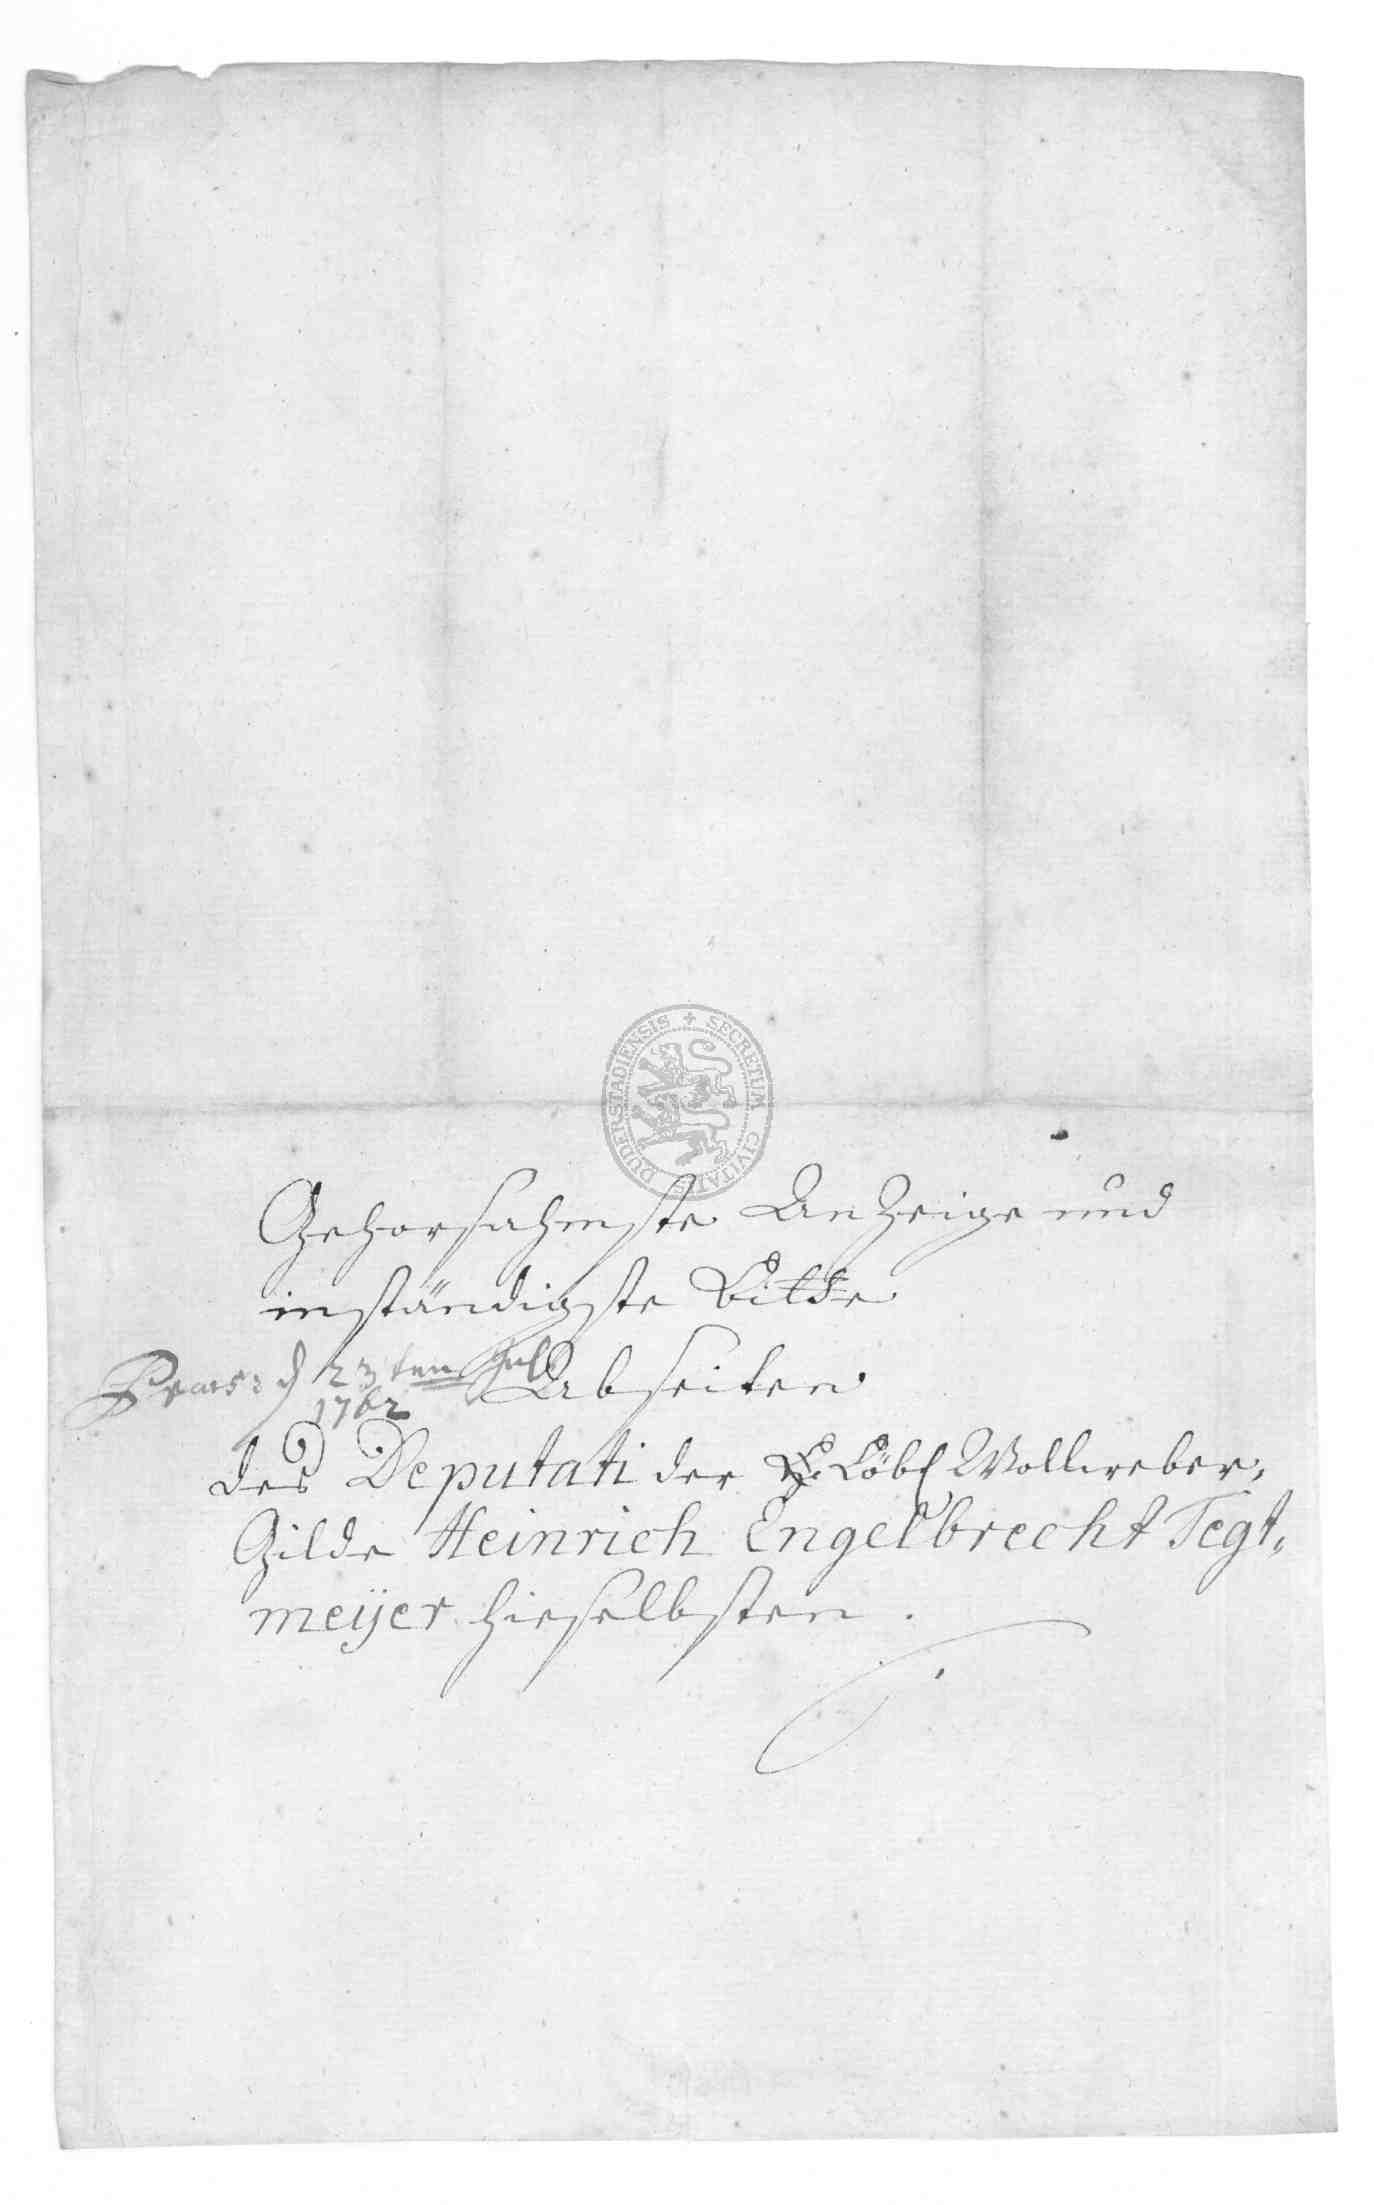 SECRETUM CIVITATIS DUDERSTADIENSIS
Gehorsahmste Anzeige und
inständigste Bitte
Praes: d 23ten Jul
1762
Abseiten
des Deputati der E. Löbl Wollweber,
Gilde Heinrich Engelbrecht Tegt,
meijer hieselbsten.